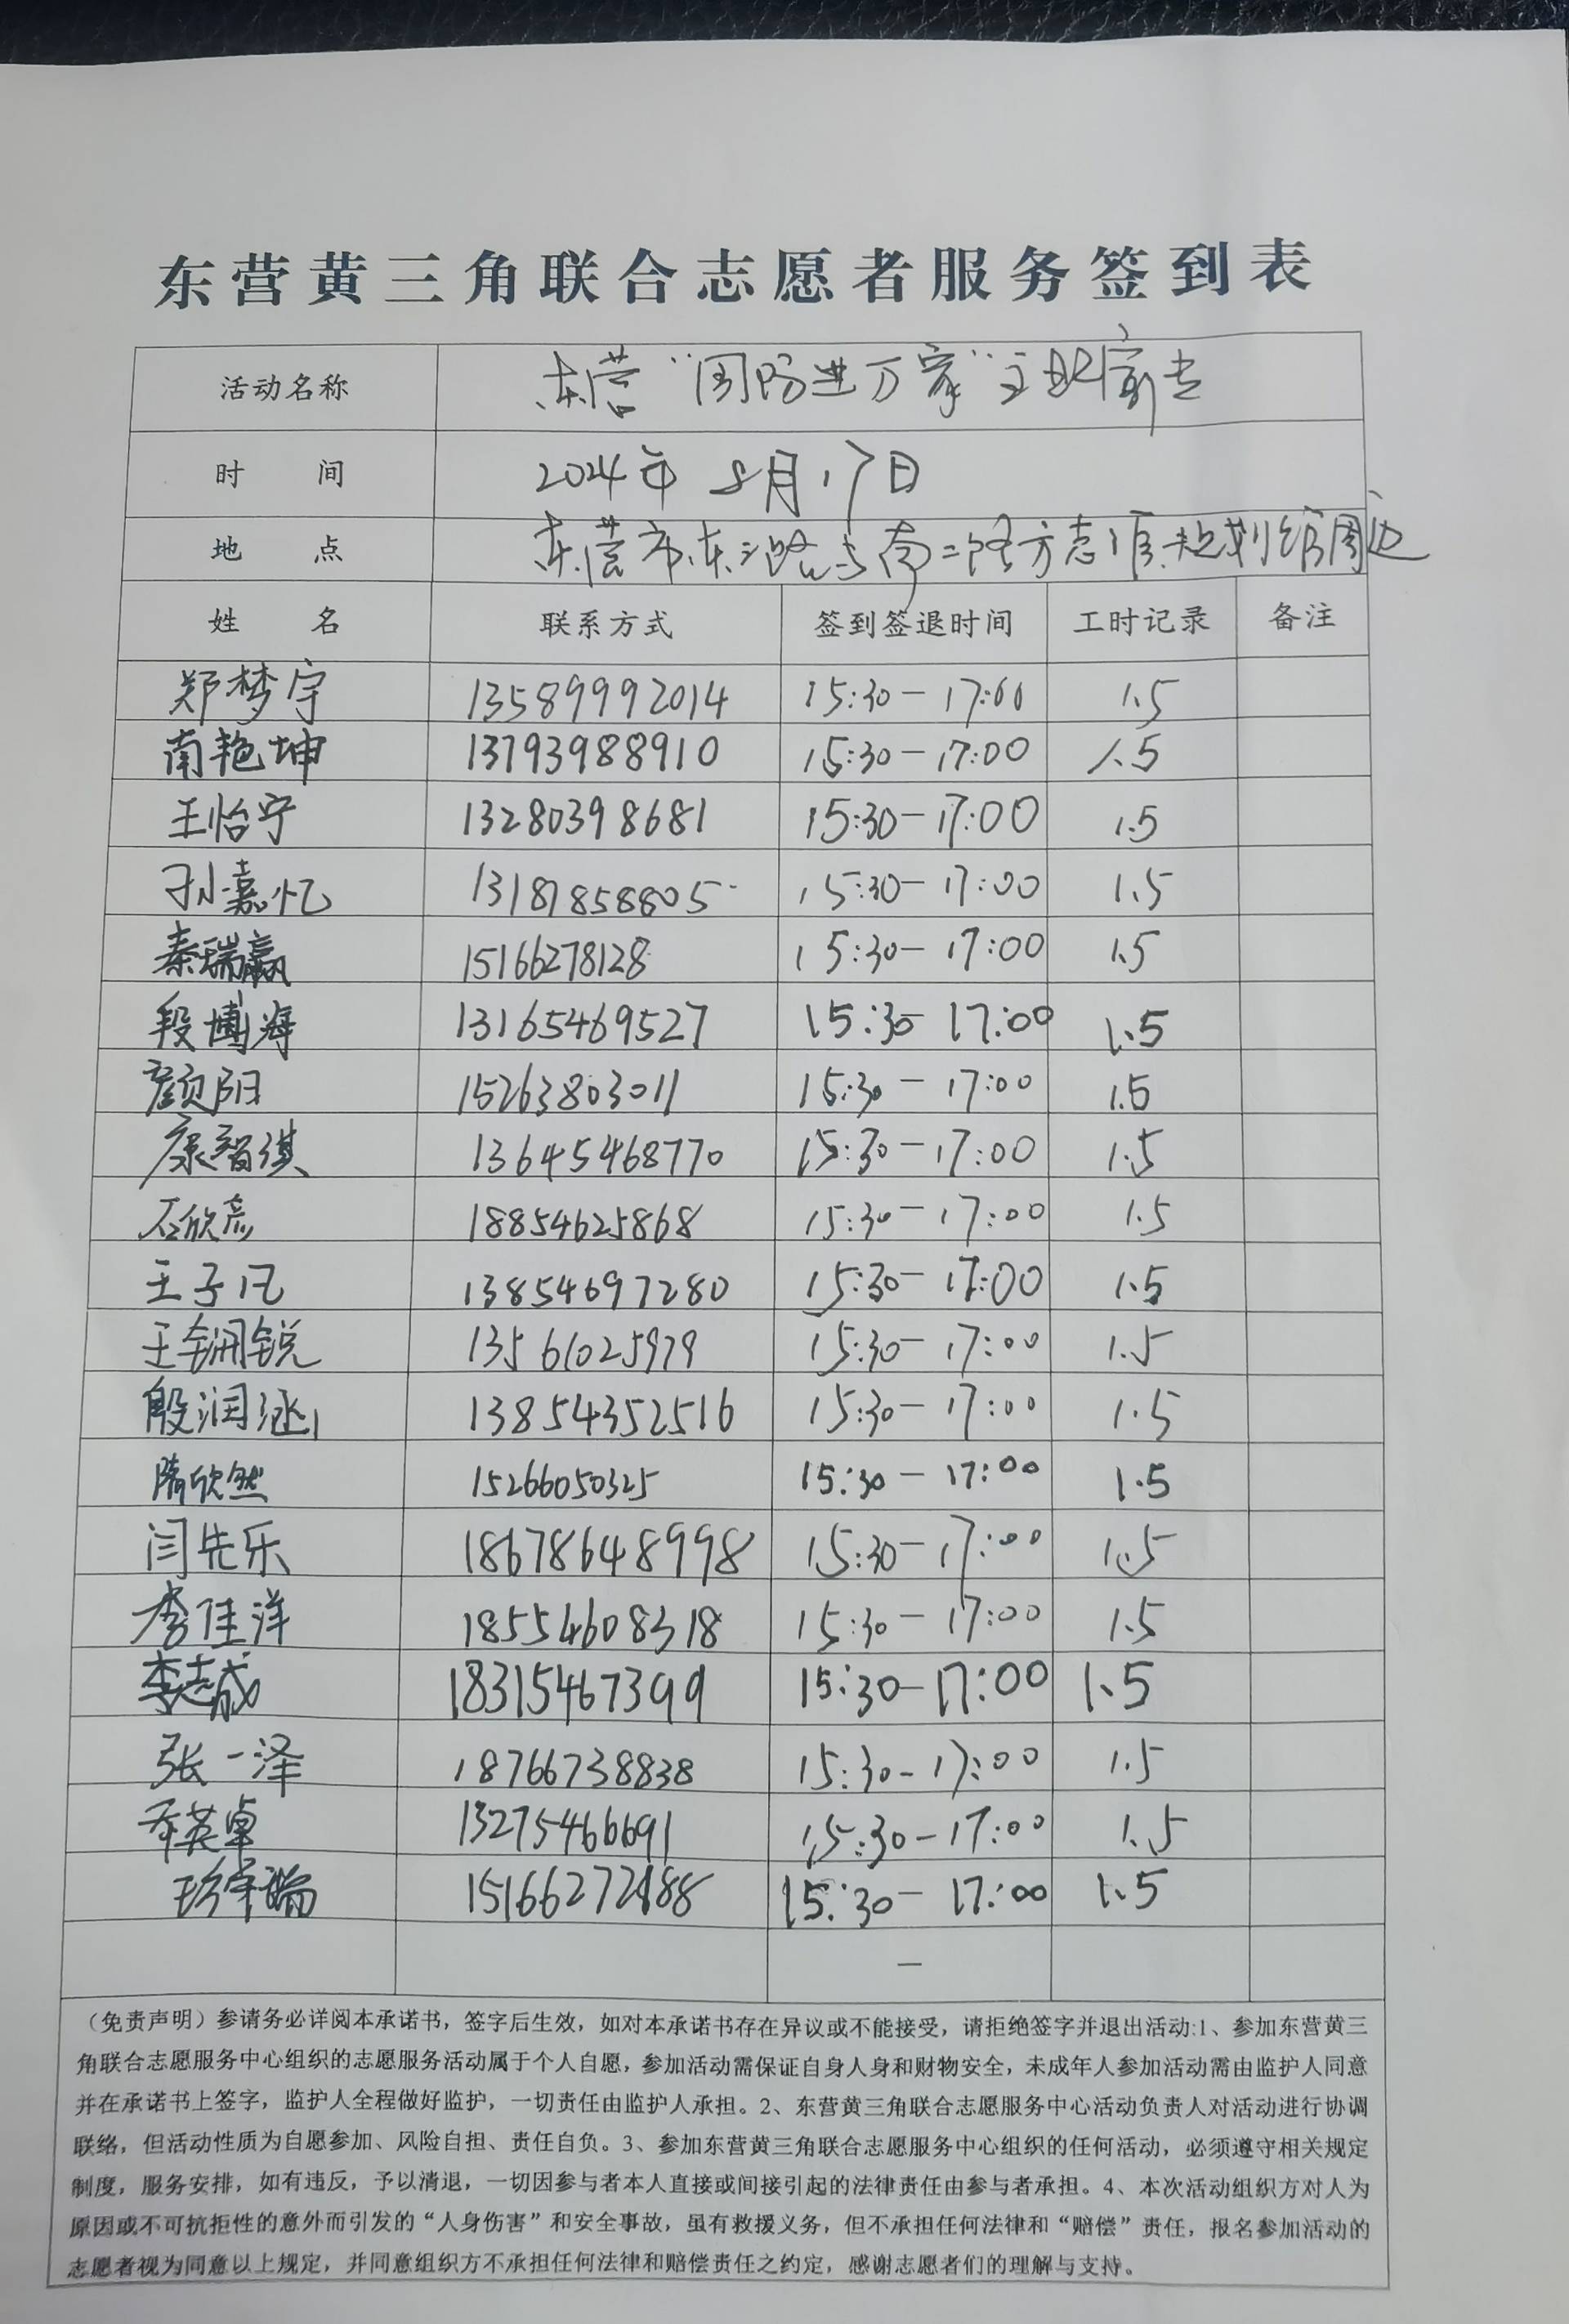 东营黄三角联合志愿者服务签到表
活动名称 东营“国防进万家”主题宣
时 间 2024年8月17日
地 点 东营市东三路与南二路方志馆规划馆周边
姓 名 联系方式 签到签退时间 工时记录 备注
郑梦宇 13589992014 15:30-17:00 1.5
南艳坤 13793988910 15:30-17:00 1.5
王怡宁 13280398681 15:30-17:00 1.5
孙嘉忆 13181858805 15:30-17:00 1.5
秦瑞赢 15166278128 15:30-17:00 1.5
段博海 13165469527 15:30-17:00 1.5
颜阳 15263803011 15:30-17:00 1.5
康智淇 13645468770 15:30-17:00 1.5
石欣彦 18854625868 15:30-17:00 1.5
王子凡 13854697280 15:30-17:00 1.5
王锎锐 13561025979 15:30-17:00 1.5
殷润涵 13854352516 15:30-17:00 1.5
隋欣然 15266050325 15:30-17:00 1.5
闫先乐 18678648998 15:30-17:00 1.5
李佳洋 18554608318 15:30-17:00 1.5
李志成 18315467399 15:30-17:00 1.5
张一泽 18766738838 15:30-17:00 1.5
乔英卓 13275466691 15:30-17:00 1.5
15166272188 15:30-17:00 1.5
—
（免责声明）参请务必详阅本承诺书，签字后生效，如对本承诺书存在异议或不能接受，请拒绝签字并退出活动:1、参加东营黄三
角联合志愿服务中心组织的志愿服务活动属于个人自愿，参加活动需保证自身人身和财物安全，未成年人参加活动需由监护人同意
并在承诺书上签字，监护人全程做好监护，一切责任由监护人承担。2、东营黄三角联合志愿服务中心活动负责人对活动进行协调
联络，但活动性质为自愿参加、风险自担、责任自负。3、参加东营黄三角联合志愿服务中心组织的任何活动，必须遵守相关规定
制度，服务安排，如有违反，予以清退，一切因参与者本人直接或间接引起的法律责任由参与者承担。4、本次活动组织方对人为
原因或不可抗拒性的意外而引发的“人身伤害”和安全事故，虽有救援义务，但不承担任何法律和“赔偿”责任，报名参加活动的
志愿者视为同意以上规定，并同意组织方不承担任何法律和赔偿责任之约定，感谢志愿者们的理解与支持。